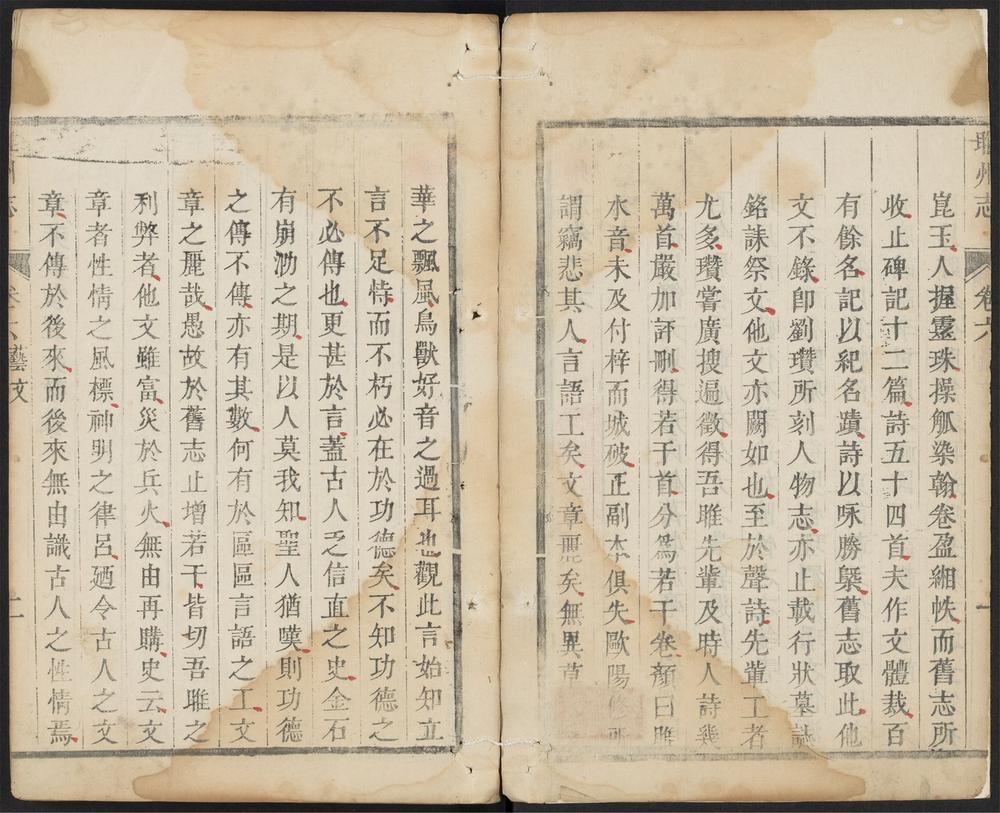 睢州志 卷六 一
崑玉人握靈珠操觚染翰卷盈緗帙而舊志所
收止碑記十二篇詩五十四首夫作文體裁百
有餘名記以紀名蹟詩以咏勝槩舊志取此他
文不錄卽劉瓚所刻人物志亦止載行狀墓誌
銘誄祭文他文亦闕如也至於聲詩先輩工者
尤多瓚嘗廣搜遍徵得吾睢先輩及時人詩幾
萬首嚴加評刪得若干首分為若干卷顏曰睢
水音未及付梓而城破正副本俱失歐陽修所
謂竊悲其人言語工矣文章麗矣無異草
華之飄風鳥獸好音之過耳也觀此言始知立
言不足恃而不朽必在於功德矣不知功德之
不必傳也更甚於言蓋古人乏信直之史金石
有崩泐之期是以人莫我知聖人猶嘆則功德
之傳不傳亦有其數何有於區區言語之工文
章之麗哉愚故於舊志止增若干皆切吾睢之
利弊者他文雖富災於兵火無由再購史云文
章者性情之風標神明之律呂廼令古人之文
章不傳於後來而後來無由識古人之性情焉
州志 卷六 藝文 二